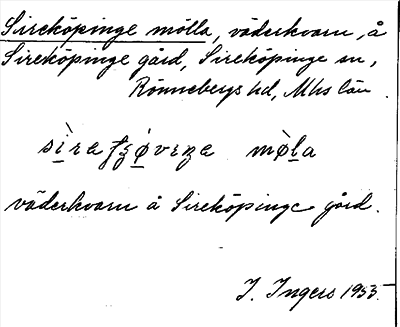 Sireköpinge mölla, väderkvarn, å
Sireköpinge gård, Sireköpinge sn,
Rönnebergs hd, Mhs län.
väderkvarn å Sireköpinge gård.
I. Ingers 1953.